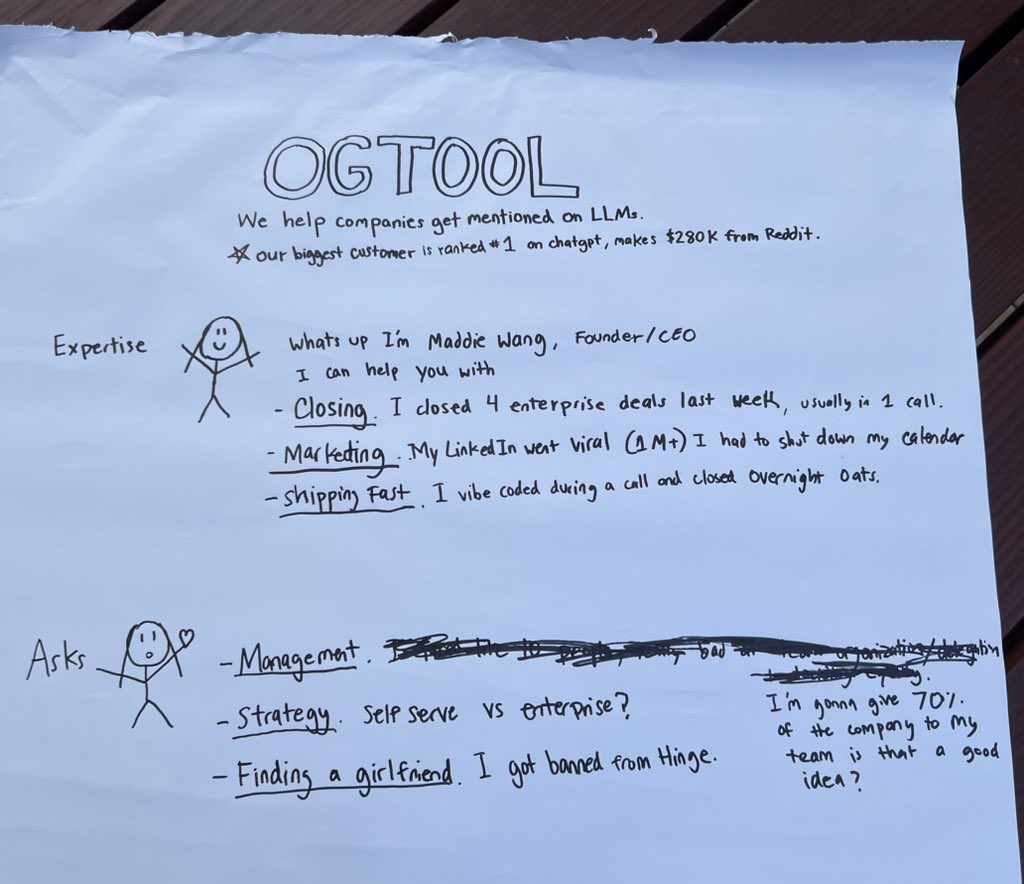 OGTOOL
We help companies get mentioned on LLMs.
☆ our biggest customer is ranked #1 on chatgpt, makes $280K from Reddit.
Expertise
whats up I'm Maddie Wang, Founder/CEO
I can help you with
- Closing. I closed 4 enterprise deals last week, usually in 1 call.
- Marketing. My LinkedIn went viral (1M+) I had to shut down my calendar
- Shipping Fast. I vibe coded during a call and closed Overnight Oats.
Asks
- Management. bad organization/delegation
I'm gonna give 70%
of the company to my
team is that a good
idea?
- Strategy. Self serve vs enterprise?
- Finding a girlfriend. I got banned from Hinge.